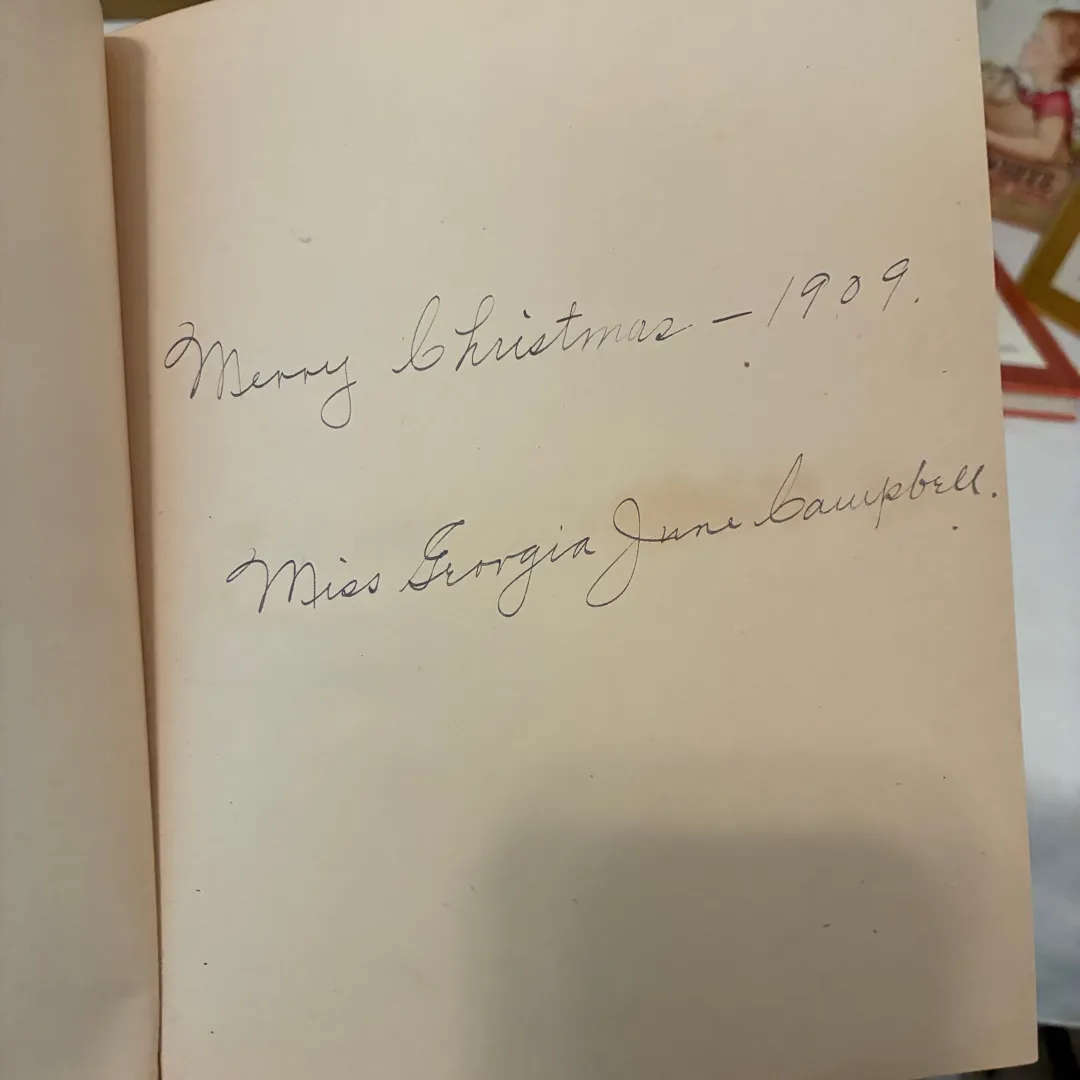 Merry Christmas – 1909.
Miss Georgia June Campbell.